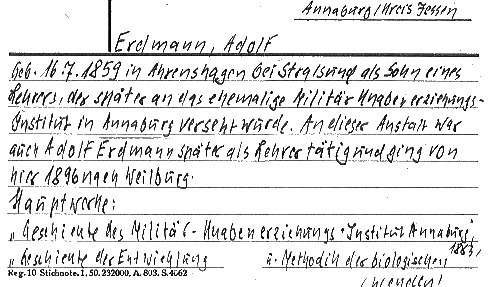 Annaburg/Kreis Jessen
Erdmann, Adolf
Geb. 16.7.1859 in Ahrenshagen bei Stralsund als Sohn eines
Lehrers, der später an das ehemalige Militär Knabenerziehungs-
Institut in Annaburg versetzt wurde. An dieser Anstalt war
auch Adolf Erdmann später als Lehrer tätig und ging von
hier 1896 nach Weilburg.
Hauptwerke:
„Geschichte des Militär-Knabenerziehungs-Institut Annaburg",
1883,
„Geschichte der Entwicklung u. Methodik der biologischen
Reg. 10 Stichnote. 1, 50. 232000, A. 803. S. 4662